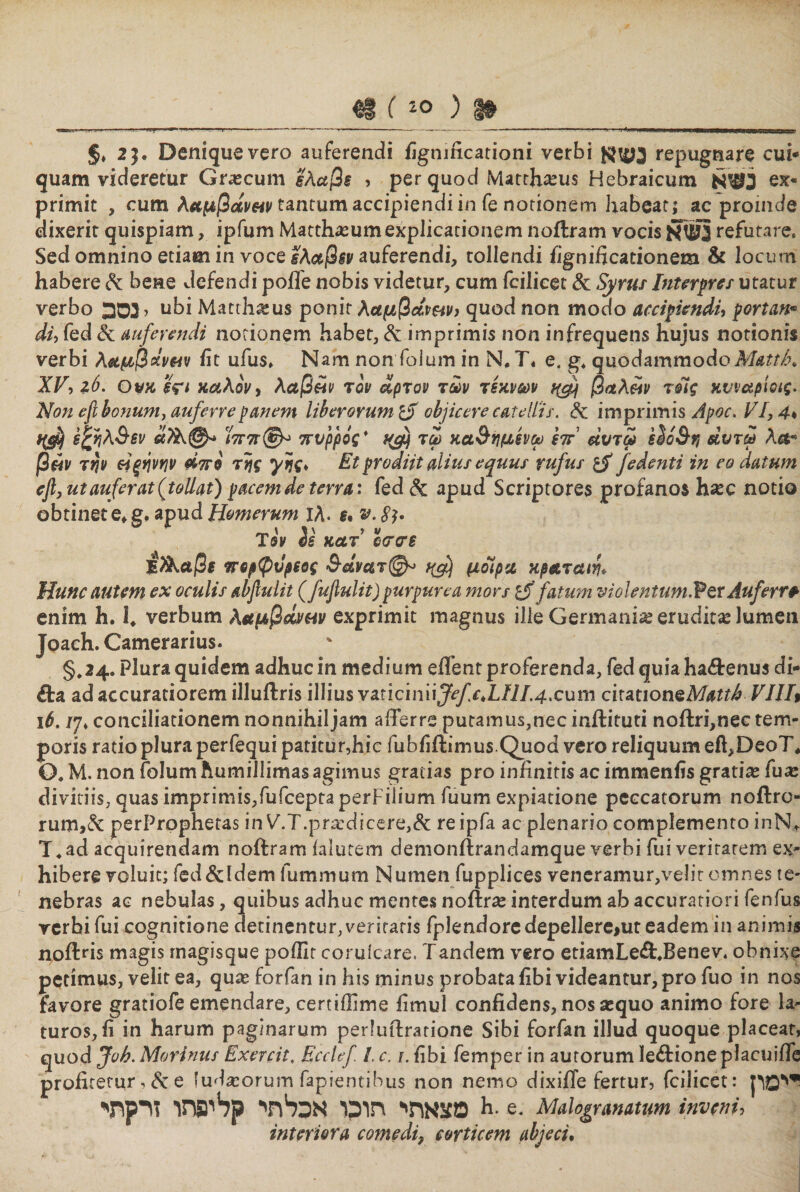 ( 20 )
§. 23. Denique vero auferendi ſignificationi verbi נשא repugnare cui-
quam videretur Græcum ἔλαβε , per quod Matthæus Hebraicum נשא ex-
primit , cum λαμβάνειν tantum accipiendi in ſe notionem habeat; ac proinde
dixerit quispiam, ipſum Matthæum explicationem noſtram vocis נשא refutare.
Sed omnino etiam in voce ἔλαβεν auferendi, tollendi ſignificationem & locum
habere & bene defendi poſſe nobis videtur, cum ſcilicet & Syrus Interpres utatur
verbo נסב, ubi Matthæus ponit λαμβάνειν, quod non modo accipiendi, portan-
di, ſed & auferendi notionem habet, & imprimis non infrequens hujus notionis
verbi λαμβάνειν ſit uſus. Nam non ſolum in N. T. e. g. quodammodo Matth.
XV, 26. Οὐκ ἔςι καλὸν, λαβεῖν τὸν ἄρτον τῶν τέκνων καὶ βαλεῖν τοῖς κυναρίοις.
Non eſt bonum, auferre panem liberorum & objicere catellis. & imprimis Apoc. VI, 4.
καὶ ἐξῆλθεν ἄλλος ἵππος πυῤῥός· καὶ τῷ καθημένῳ ἐπ᾽ αὐτῷ ἐδόθη αὐτῷ λα-
βεῖν τὴν εἰρήνην ἀπὸ τῆς γῆς. Et prodiit alius equus rufus & ſedenti in eo datum
eſt, ut auferat (tollat) pacem de terra: ſed & apud Scriptores profanos hæc notio
obtinet e. g. apud Homerum ιλ. ε. v. 83.
Τὸν δὲ κατ᾽ ὄσσε
ἔλλαβε πορφύρεος θάνατος καὶ μοῖρα κραταιή.
Hunc autem ex oculis abſtulit (ſuſtulit) purpurea mors & fatum violentum. Per Auferre
enim h. l. verbum λαμβάνειν exprimit magnus ille Germaniæ eruditæ lumen
Joach. Camerarius.
§. 24. Plura quidem adhuc in medium eſſent proferenda, ſed quia hactenus di-
cta ad accuratiorem illuſtris illius vaticinii Jeſ. c. LIII. 4. cum citatione Matth VIII,
16. 17. conciliationem nonnihil jam afferre putamus, nec inſtituti noſtri, nec tem-
poris ratio plura perſequi patitur, hic ſubſiſtimus. Quod vero reliquum eſt, Deo T.
O. M. non ſolum humillimas agimus gratias pro infinitis ac immenſis gratiæ ſuæ
divitiis, quas imprimis, ſuſcepta per Filium ſuum expiatione peccatorum noſtro-
rum, & per Prophetas in V. T. prædicere, & re ipſa ac plenario complemento in N.
T. ad acquirendam noſtram ſalutem demonſtrandamque verbi ſui veritatem ex-
hibere voluit; ſed & Idem ſummum Numen ſupplices veneramur, velit omnes te-
nebras ac nebulas, quibus adhuc mentes noſtræ interdum ab accuratiori ſenſus
verbi ſui cognitione detinentur, veritatis ſplendore depellere, ut eadem in animis
noſtris magis magisque poſſit coruſcare. Tandem vero etiam Lect. Benev. obnixe
petimus, velit ea, quæ forſan in his minus probata ſibi videantur, pro ſuo in nos
favore gratioſe emendare, certiſſime ſimul confidens, nos æquo animo fore la-
turos, ſi in harum paginarum perluſtratione Sibi forſan illud quoque placeat,
quod Joh. Morinus Exercit. Eccleſ. l. c. 1. ſibi ſemper in autorum lectione placuiſſe
profitetur, & e Iudæorum ſapientibus non nemo dixiſſe fertur, ſcilicet: רימון
מצאתי תוכו אכלתי קליפתו זרקתי h. e. Malogranatum inveni,
interiora comedi, corticem abjeci.